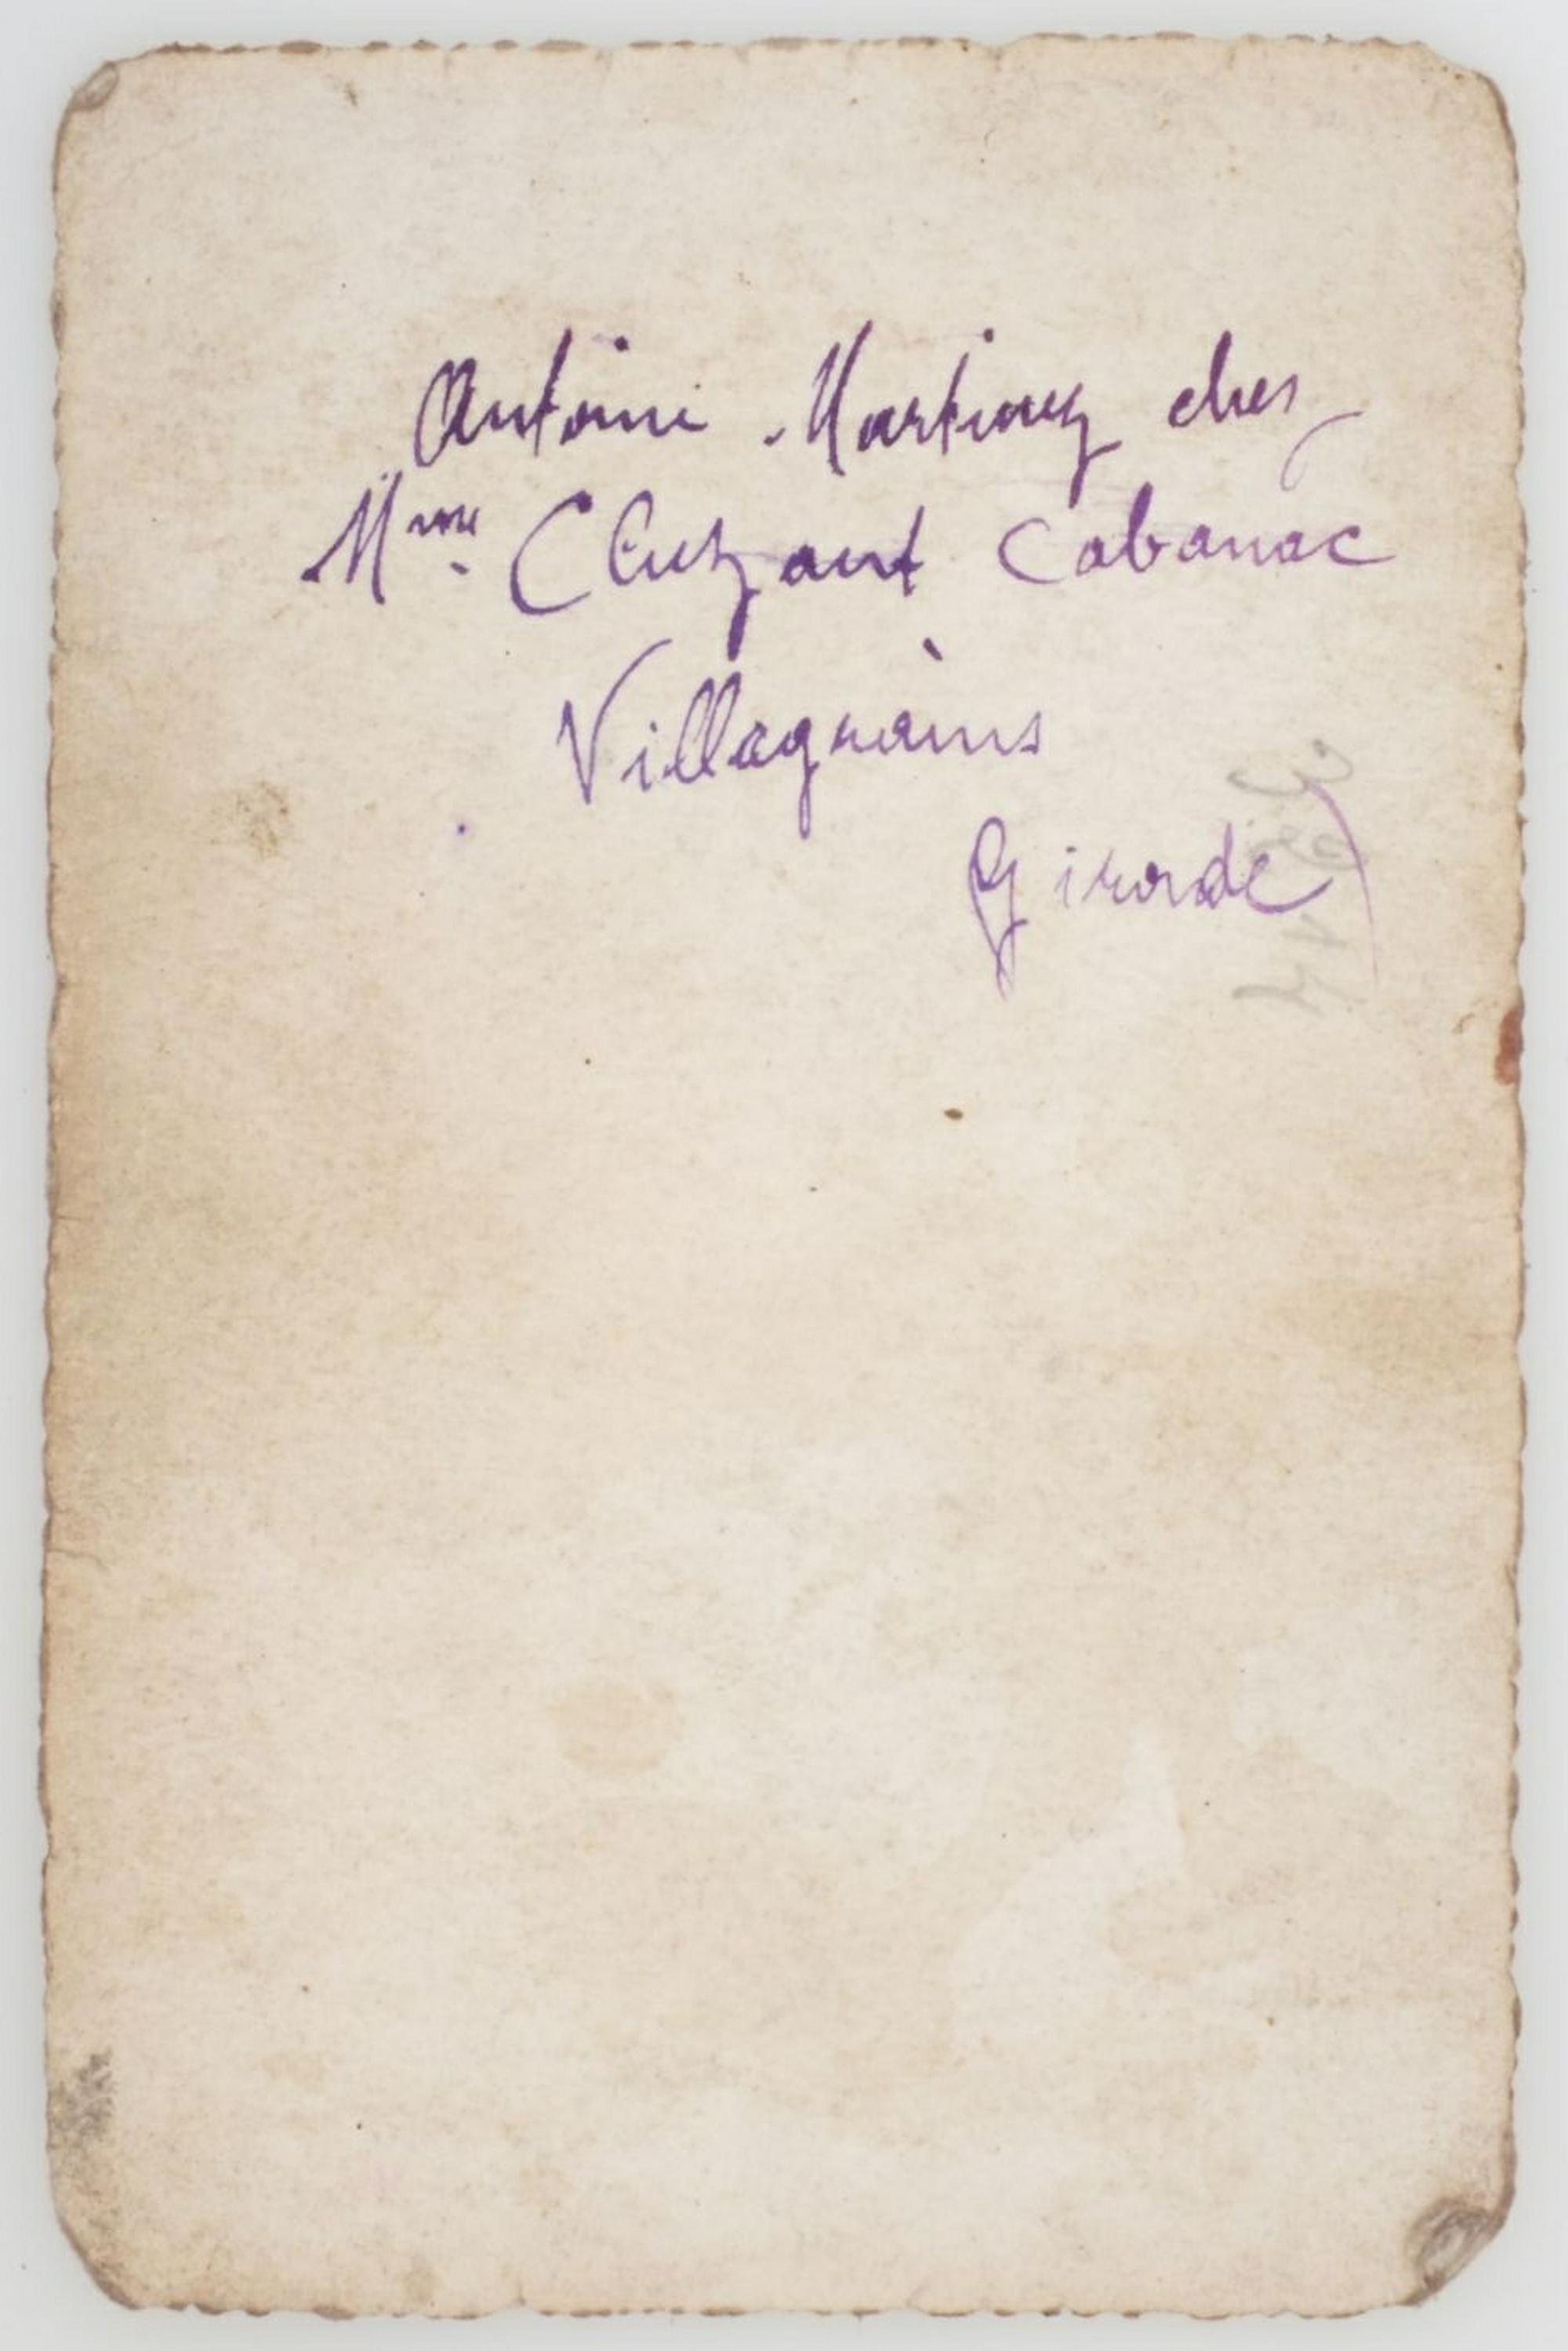 Antoine Martinez chez
Mme Cluzant Cabanac
Villagrains
Girode